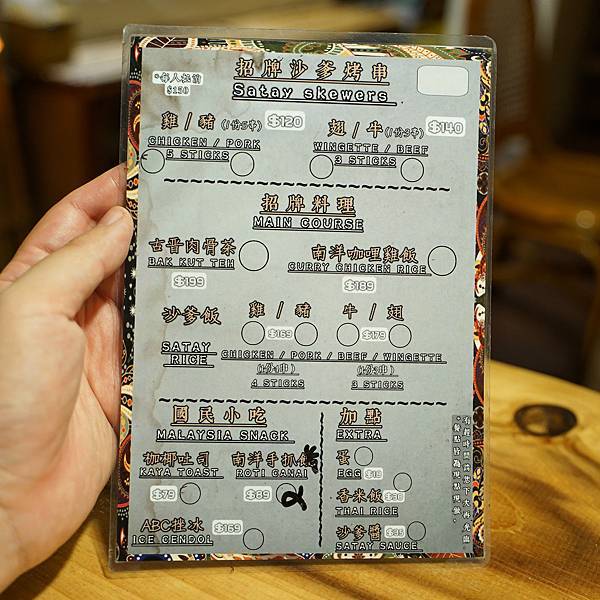 *每人低消
$150
招牌沙爹烤串
Satay skewers
雞/豬(1份5串) $120
CHICKEN / PORK
5 STICKS
翅/牛(1份3串) $140
WINGETTE / BEEF
3 STICKS
招牌料理
MAIN COURSE
古晋肉骨茶
BAK KUT TEH
$199
南洋咖哩雞飯
CURRY CHICKEN RICE
$189
沙爹飯
SATAY
RICE
雞/豬 牛/翅
$169 $179
CHICKEN / PORK / BEEF / WINGETTE
4 STICKS 3 STICKS
國民小吃
MALAYSIA SNACK
咖椰吐司
KAYA TOAST
$79
南洋手抓餅
ROTI CANAI
$89 2
ABC挫冰 $169
ICE CENDOL
加點
EXTRA
蛋
EGG $10
香米飯 $30
THAI RICE
沙爹醬 $35
SATAY SAUCE